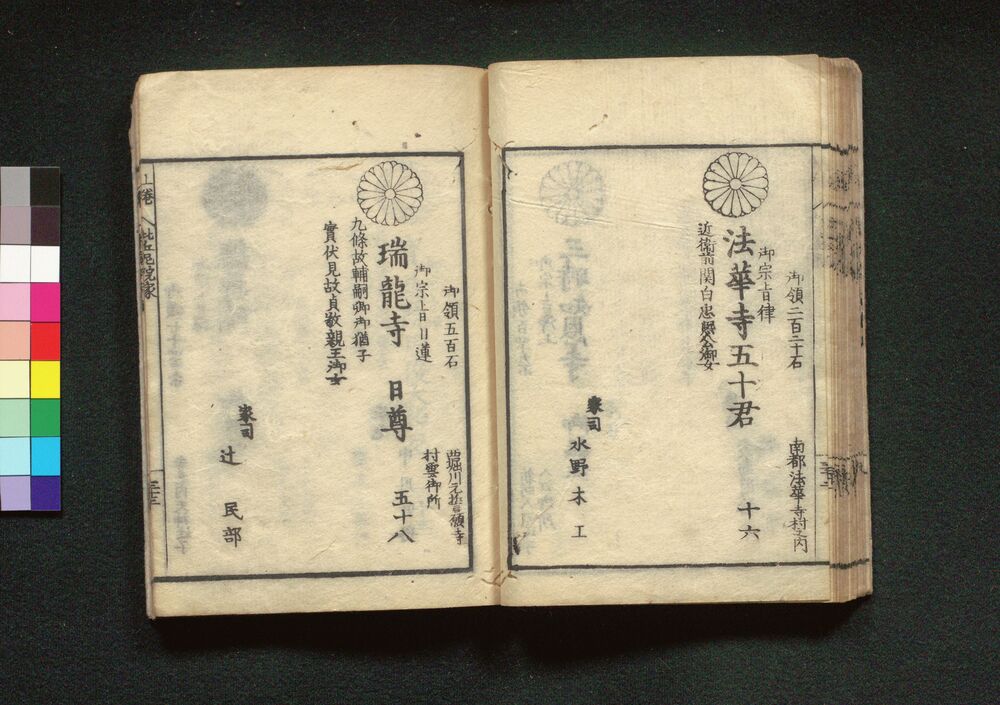 御領二百二十石
南都法華寺村之内
御宗旨律
法華寺五十君
十六
近衛前関白忠熈公御女
家司
水野木工
御領五百石
西堀川元誓願寺
村雲御所
御宗旨日蓮
瑞龍寺 日尊
五十八
九條故輔嗣卿御猶子
實伏見故貞敬親王御女
家司
辻 民部
上巻
比丘尼院家
三十三